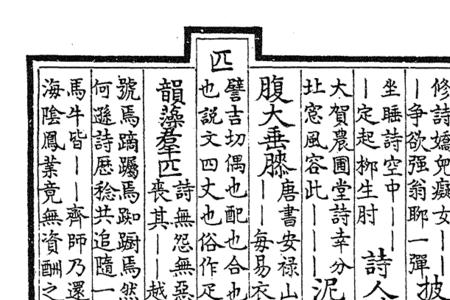 修詩嬌兒癡女｜｜披
｜爭欲强翁聊一彈
坐睡詩空中｜｜詩人
｜定起栁生肘
大賀農圃堂詩幸分泥
圵窓風容此｜｜
腹大垂膝唐書安禄山
｜｜毎易衣
匹
譬吉切偶也配也合也
也説文四丈也俗作疋
韻藻羣匹詩無怨無惡
喪其｜｜越
號焉蹢躅焉踟蹰焉然
何遜詩歴稔共追隨一
馬牛皆｜｜齊師乃還
海陰鳳業竟無資酬之